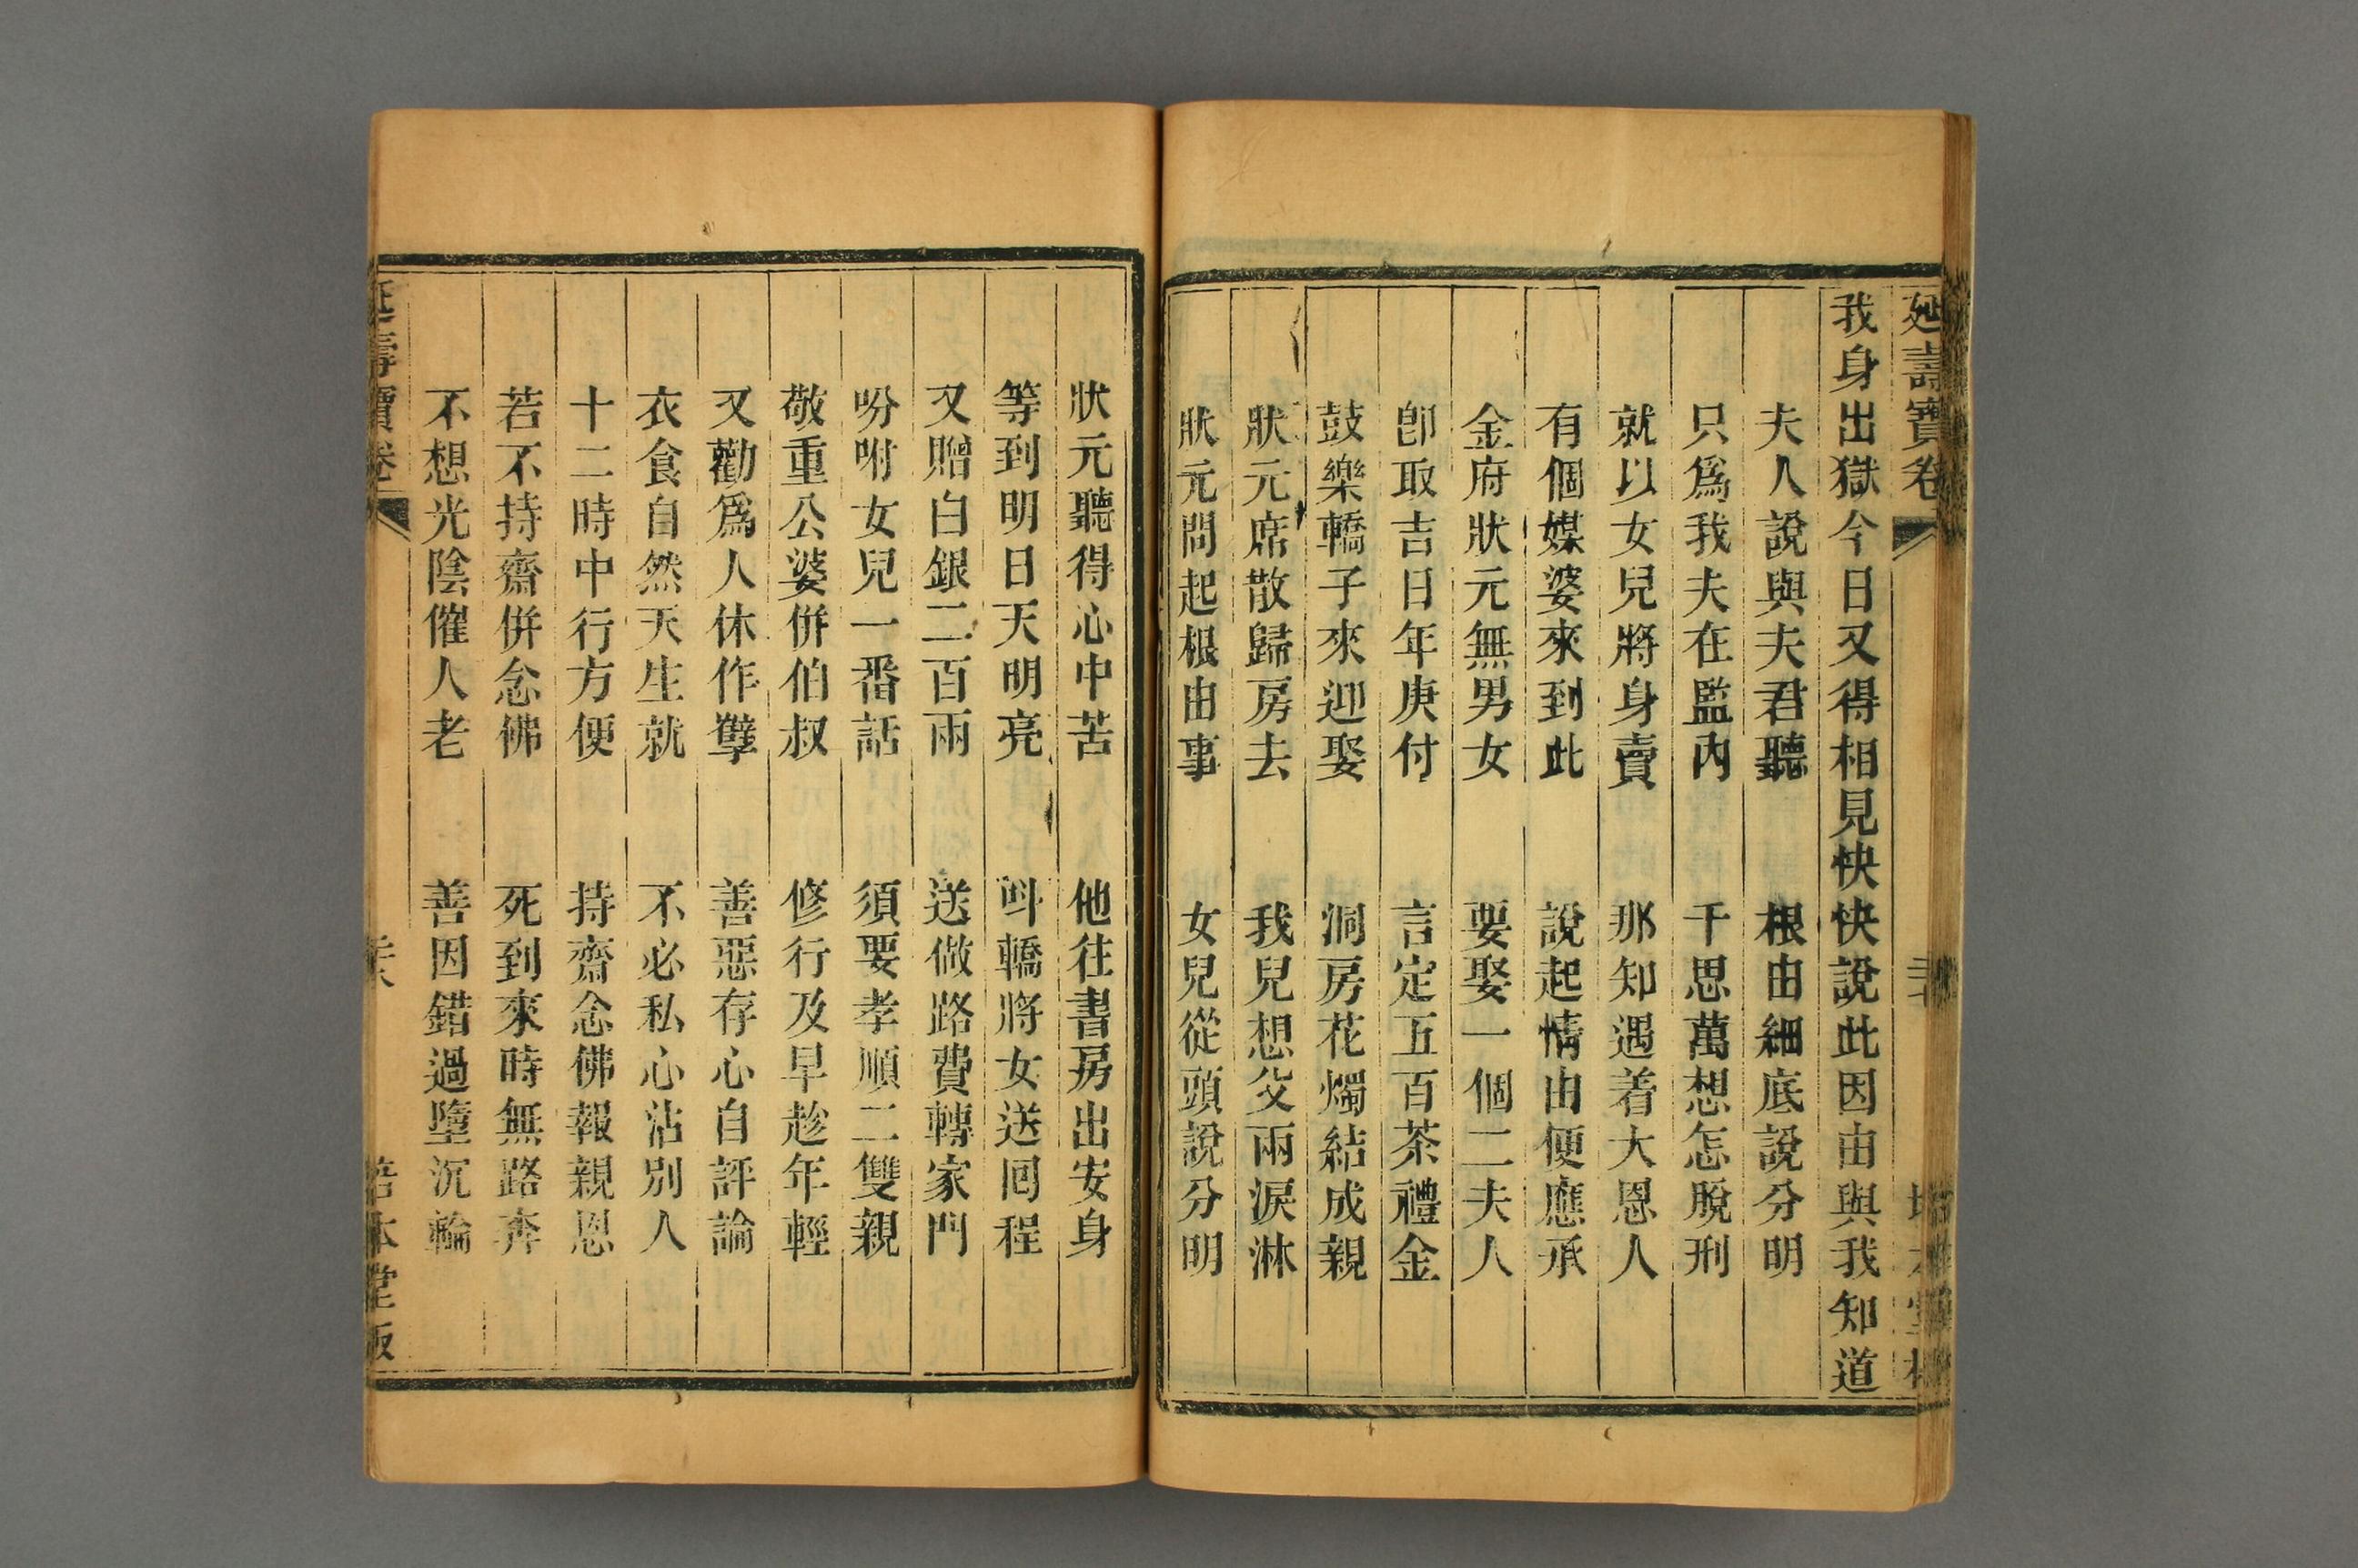 延壽寶卷
我身出獄今日又得相見快快說此因由與我知道
夫人說與夫君聽 根由細底說分明
只爲我夫在監內 千思萬想怎脫刑
就以女兒將身賣 那知遇着大恩人
有個媒婆來到此 說起情由便應承
金府狀元無男女 要娶一個二夫人
卽取吉日年庚付 言定五百茶禮金
鼓樂轎子來迎娶 洞房花燭結成親
狀元席散歸房去 我兒想父兩淚淋
狀元問起根由事 女兒從頭說分明
狀元聽得心中苦 他往書房出安身
等到明日天明亮 呌轎將女送囘程
又贈白銀二百兩 送做路費轉家門
吩咐女兒一番話 須要孝順二雙親
敬重公婆併伯叔 修行及早趁年輕
又勸爲人休作孽 善惡存心自評論
衣食自然天生就 不必私心沾別人
十二時中行方便 持齋念佛報親恩
若不持齋併念佛 死到來時無路奔
不想光陰催人老 善因錯過墮沉輪
延壽寶卷 本堂版